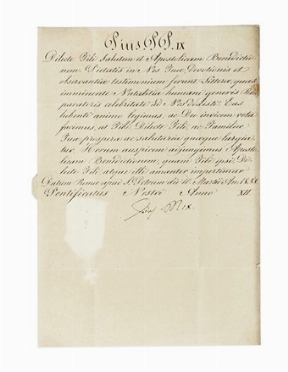 Pius P.P. IX
Dilecte Fili Salutem et Apostolicam Benedictio
nem Pietatis in Nos Tuae Devotionis et
observantiae testimonium ferunt Litterae, quas
imminente Natalitia humani generis Re
paratoris celebritate ad Nos dedisti. Eas
libenti animo legimus, ac Deo vicem vota
facimus, ut Tibi Dilecte Fili, ac Familiae
Tuae prospere ac salutaria quaeque largia
tur. Horum auspicem adjungimus Aposto
licam Benedictionem, quam Tibi ipsi Di
lecte Fili atque illi amanter impertimur
Datum Romae apud S. Petrum die 10 Martii An. 1858
Pontificatus Nostri Anno XII.
Pius PP. IX.